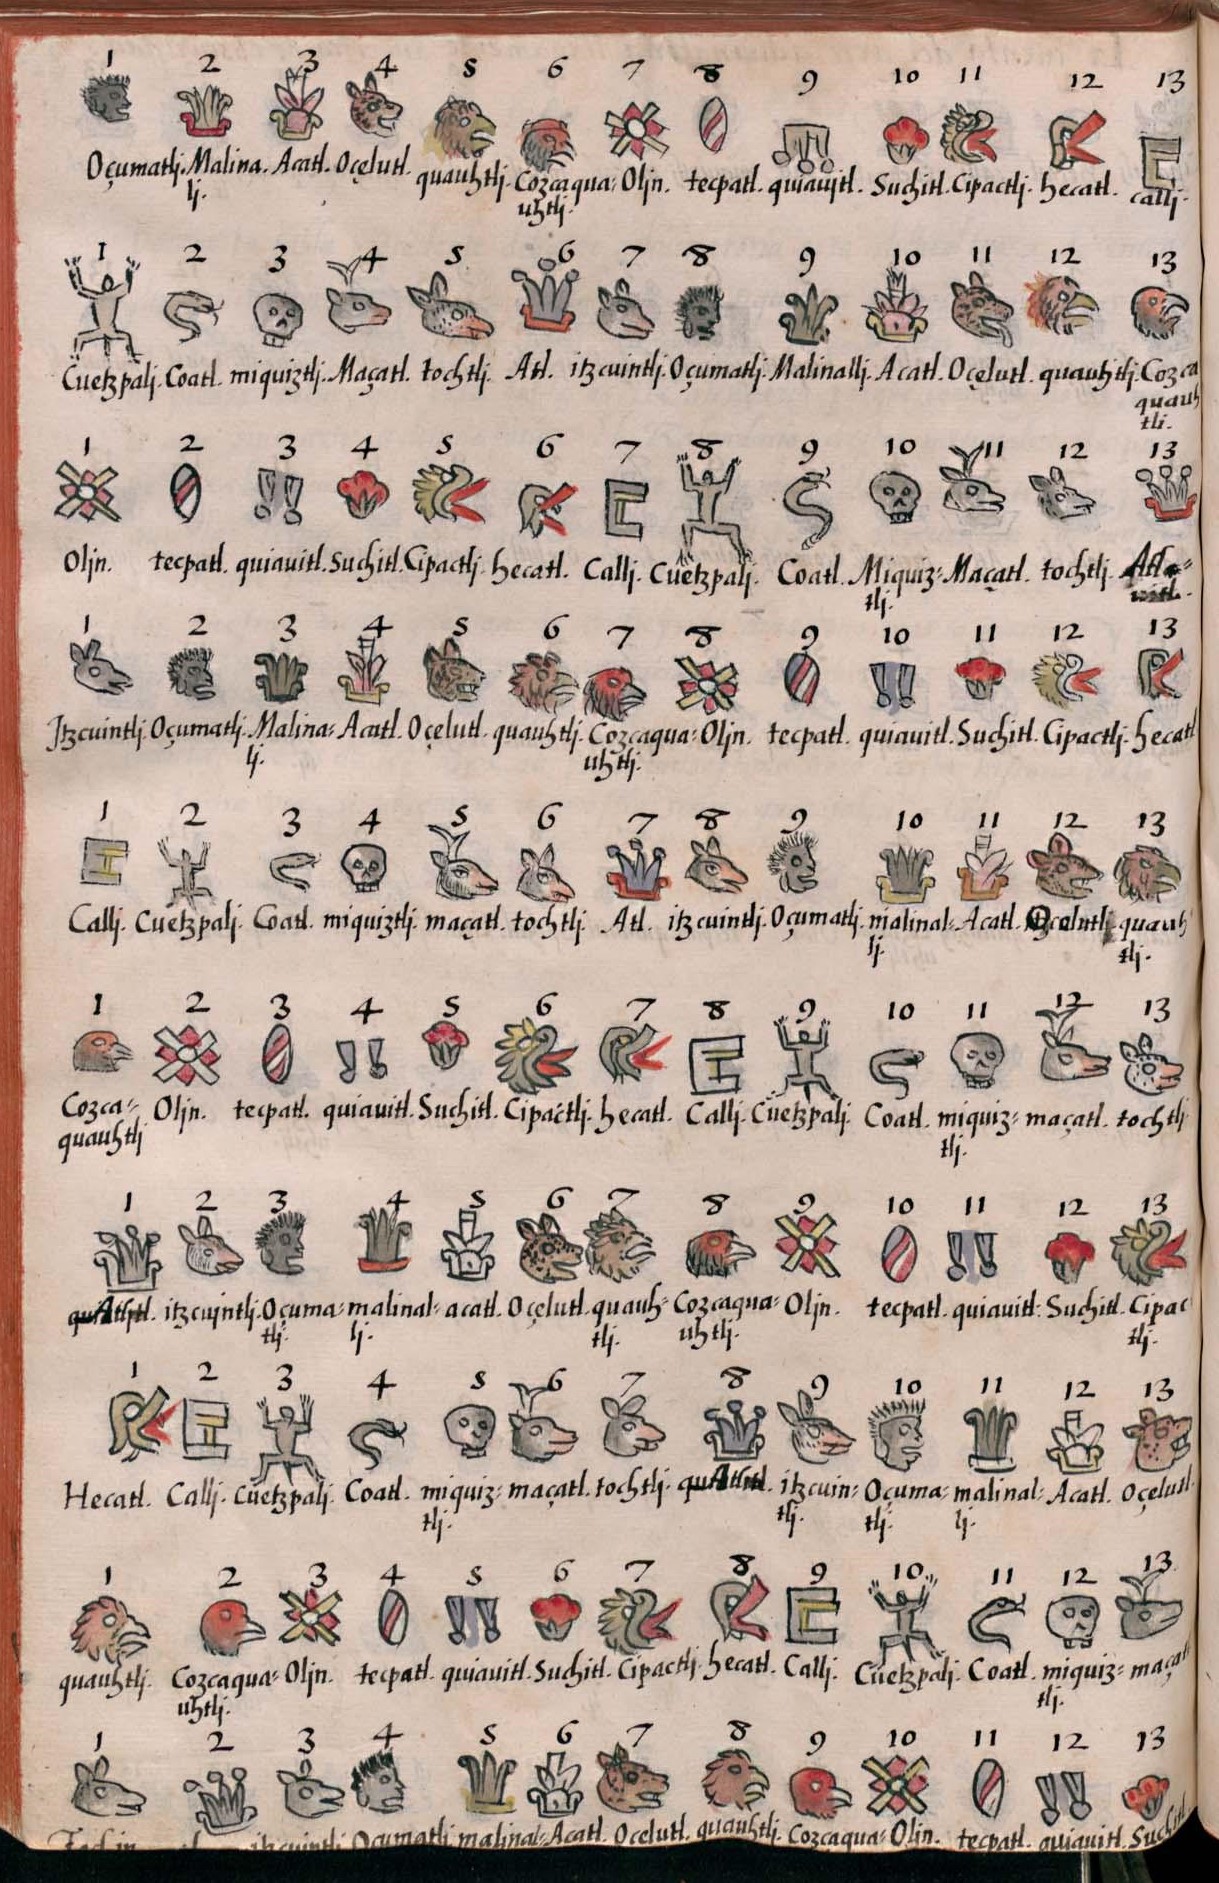 1 2 3 4 5 6 7 8 9 10 11 12 13
Oçumatlj. Malina. Acatl. Oçelutl. quauhtlj. Cozcaqua= Oljn. tecpatl. quiauitl. Suchitl. Cipactlj. hecatl. callj.
lj. uhtlj.
1 2 3 4 5 6 7 8 9 10 11 12 13
Cuetzpalj. Coatl. miquiztlj. Maçatl. tochtlj. Atl. itzcuintlj. Oçumatlj. Malinallj. Acatl. Oçelutl. quauhtlj. Cozca
quauh
tli.
1 2 3 4 5 6 7 8 9 10 11 12 13
Oljn. tecpatl. quiauitl. Suchitl. Cipactlj. hecatl. Callj. Cuetzpalj. Coatl. Miquiz= Maçatl. tochtlj.
tlj.
1 2 3 4 5 6 7 8 9 10 11 12 13
Jtzcuintlj. Oçumatlj. Malina= Acatl. Oçelutl. quauhtlj. Cozcaqua= Oljn. tecpatl. quiauitl. Suchitl. Cipactlj. hecatl
lj. uhtlj.
1 2 3 4 5 6 7 8 9 10 11 12 13
Callj. Cuetzpalj. Coatl. miquiztlj. maçatl. tochtlj. Atl. itzcuintlj. Oçumatlj. malinal= Acatl. Oçelutlj quauh
lj. tlj.
1 2 3 4 5 6 7 8 9 10 11 12 13
Cozca= Oljn. tecpatl. quiauitl. Suchitl. Cipactlj. hecatl. Callj. Cuetzpalj. Coatl. miquiz= maçatl. tochtlj
quauhtlj tlj.
1 2 3 4 5 6 7 8 9 10 11 12 13
itzcuintlj. Oçuma= malinal= acatl. Oçelutl. quauh= Cozcaqua= Oljn. tecpatl. quiauitl: Suchitl. Cipac
tlj. lj. tlj. uhtlj. tlj.
1 2 3 4 5 6 7 8 9 10 11 12 13
Hecatl. Callj. Cuetzpalj. Coatl. miquiz= maçatl. tochtlj. itzcuin= Oçuma= malinal= Acatl. Oçelutl.
tlj. tlj. tlj. lj.
1 2 3 4 5 6 7 8 9 10 11 12 13
quauhtlj. Cozcaqua= Oljn. tecpatl. quiauitl. Suchitl. Cipactlj. hecatl. Callj. Cuetzpalj. Coatl. miquiz= maçatl
uhtlj. tlj.
1 2 3 4 5 6 7 8 9 10 11 12 13
itzcuintlj. Oçumatlj. malinal= Acatl. Oçelutl. quauhtlj. Cozcaqua= Oljn. tecpatl. quiauitl. Suchitl